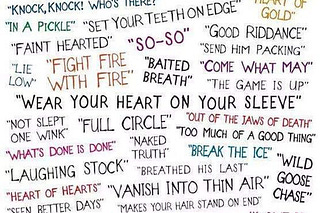 "KNOCK, KNOCK! WHO'S THERE?"
HEART OF
GOLD"
"IN A PICKLE" "SET YOUR TEETH ON EDGE"
"FAINT HEARTED" "SO-SO" "GOOD RIDDANCE"
"SEND HIM PACKING"
"LIE
LOW"
"FIGHT FIRE
WITH FIRE"
"BAITED
BREATH"
"COME WHAT MAY"
"THE GAME IS UP"
"WEAR YOUR HEART ON YOUR SLEEVE"
"NOT SLEPT
ONE WINK"
"FULL CIRCLE"
"OUT OF THE JAWS OF DEATH"
"TOO MUCH OF A GOOD THING"
"WHAT'S DONE IS DONE"
"NAKED
TRUTH"
"BREAK THE ICE"
"WILD
GOOSE
CHASE"
"LAUGHING STOCK"
"BREATHED HIS LAST"
"HEART OF HEARTS"
"VANISH INTO THIN AIR"
"SEEN BETTER DAYS"
"MAKES YOUR HAIR STAND ON END"